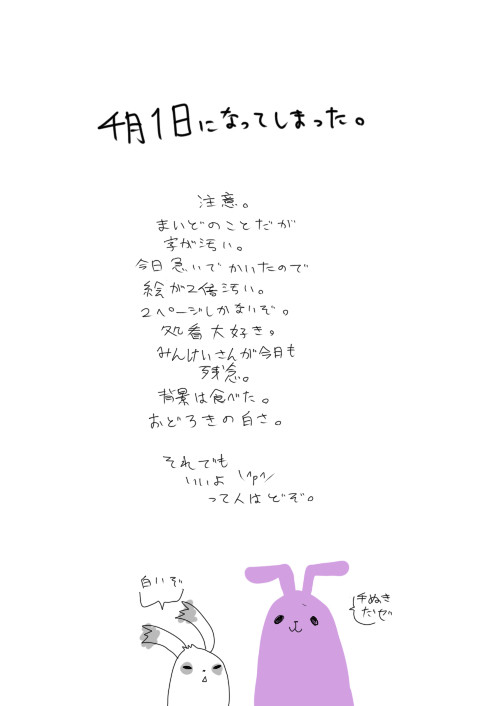 4月1日になってしまった。
注意。
まいどのことだが
字が汚い。
今日急いでかいたので
絵が2倍汚い。
2ページしかないぞ。
処番大好き。
みんけいさんが今日も
残念。
背景は食べた。
おどろきの白さ。
それでも
いいよ \^p^/
って人はどぞ。
白いぞ
手ぬき
だぜ